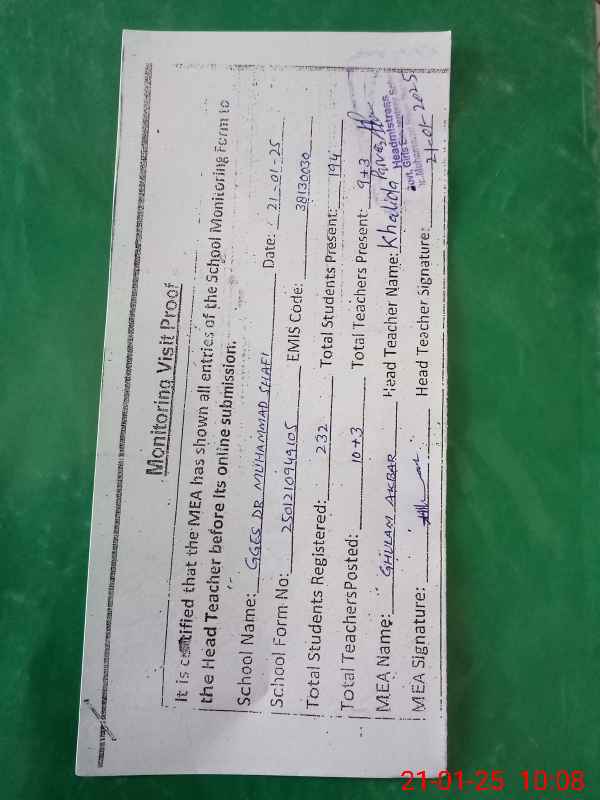 Monitoring Visit Proof
It is certified that the MEA has shown all entries of the School Monitoring Form to
the Head Teacher before its online submission.
School Name: GGES DR MUHAMMAD SHAFI
School Form No: 2501210949105 Date: 21-01-25
EMIS Code: 38130030
Total Students Registered: 232 Total Students Present: 194
Total Teachers Posted: 10+3 Total Teachers Present: 9+3
MEA Name: GHULAM AKBAR Head Teacher Name: Khalida Parveen
MEA Signature: Head Teacher Signature:
Headmistress
Govt. Girls Elementary School
21-01-2025
21-01-25 10:08